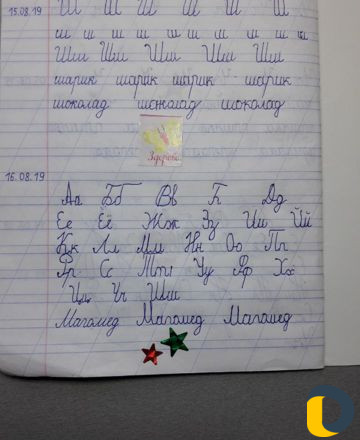 15.08.19
Ш Ш Ш Ш Ш Ш
ш ш ш ш ш ш ш ш ш ш
Шш Шш Шш Шш Шш
шарик шарик шарик шарик
шоколад шоколад шоколад
Здорово
16.08.19
Аа Бб Вв Г Дд
Ее Ёё Жж Зз Ии Йй
Кк Лл Мм Нн Оо Пп
Рр Сс Тт Уу Фф Хх
Цц Чч Шш
Магомед Магомед Магомед